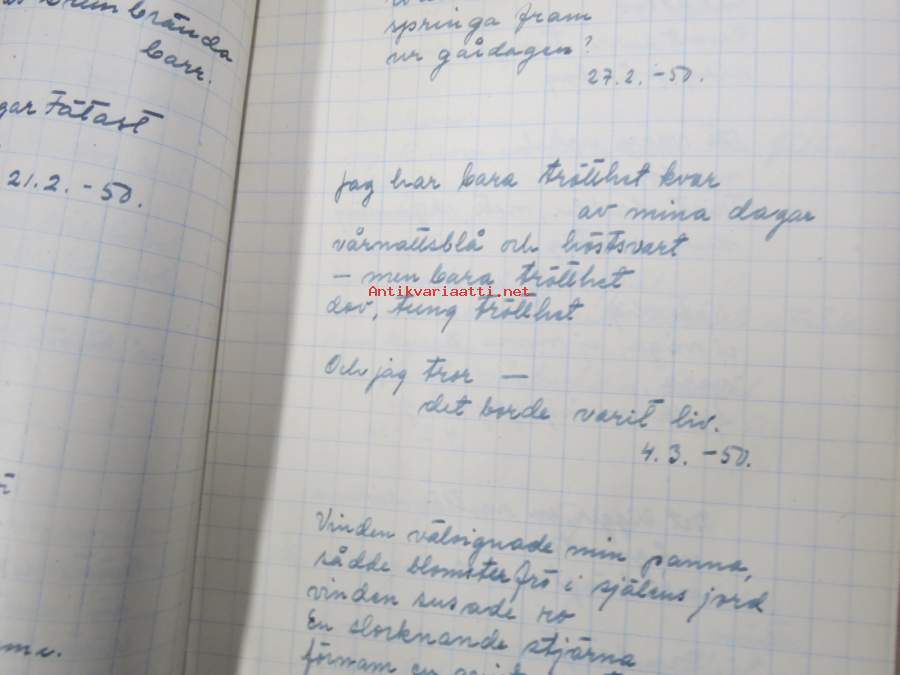 brända
barr.
Fåtast
21.2. -50.
springa fram
ur gårdagen?
27.2. -50.
jag har bara trötthet kvar
av mina dagar
vårnattsblå och höstsvart
- men bara trötthet
dov, tung trötthet
Och jag tror —
det borde varit liv.
4.3. -50.
Vinden välsignade min panna,
sådde blomsterfrö i själens jord
vinden susade ro
En slocknande stjärna
förnam en
Antikvariaatti.net